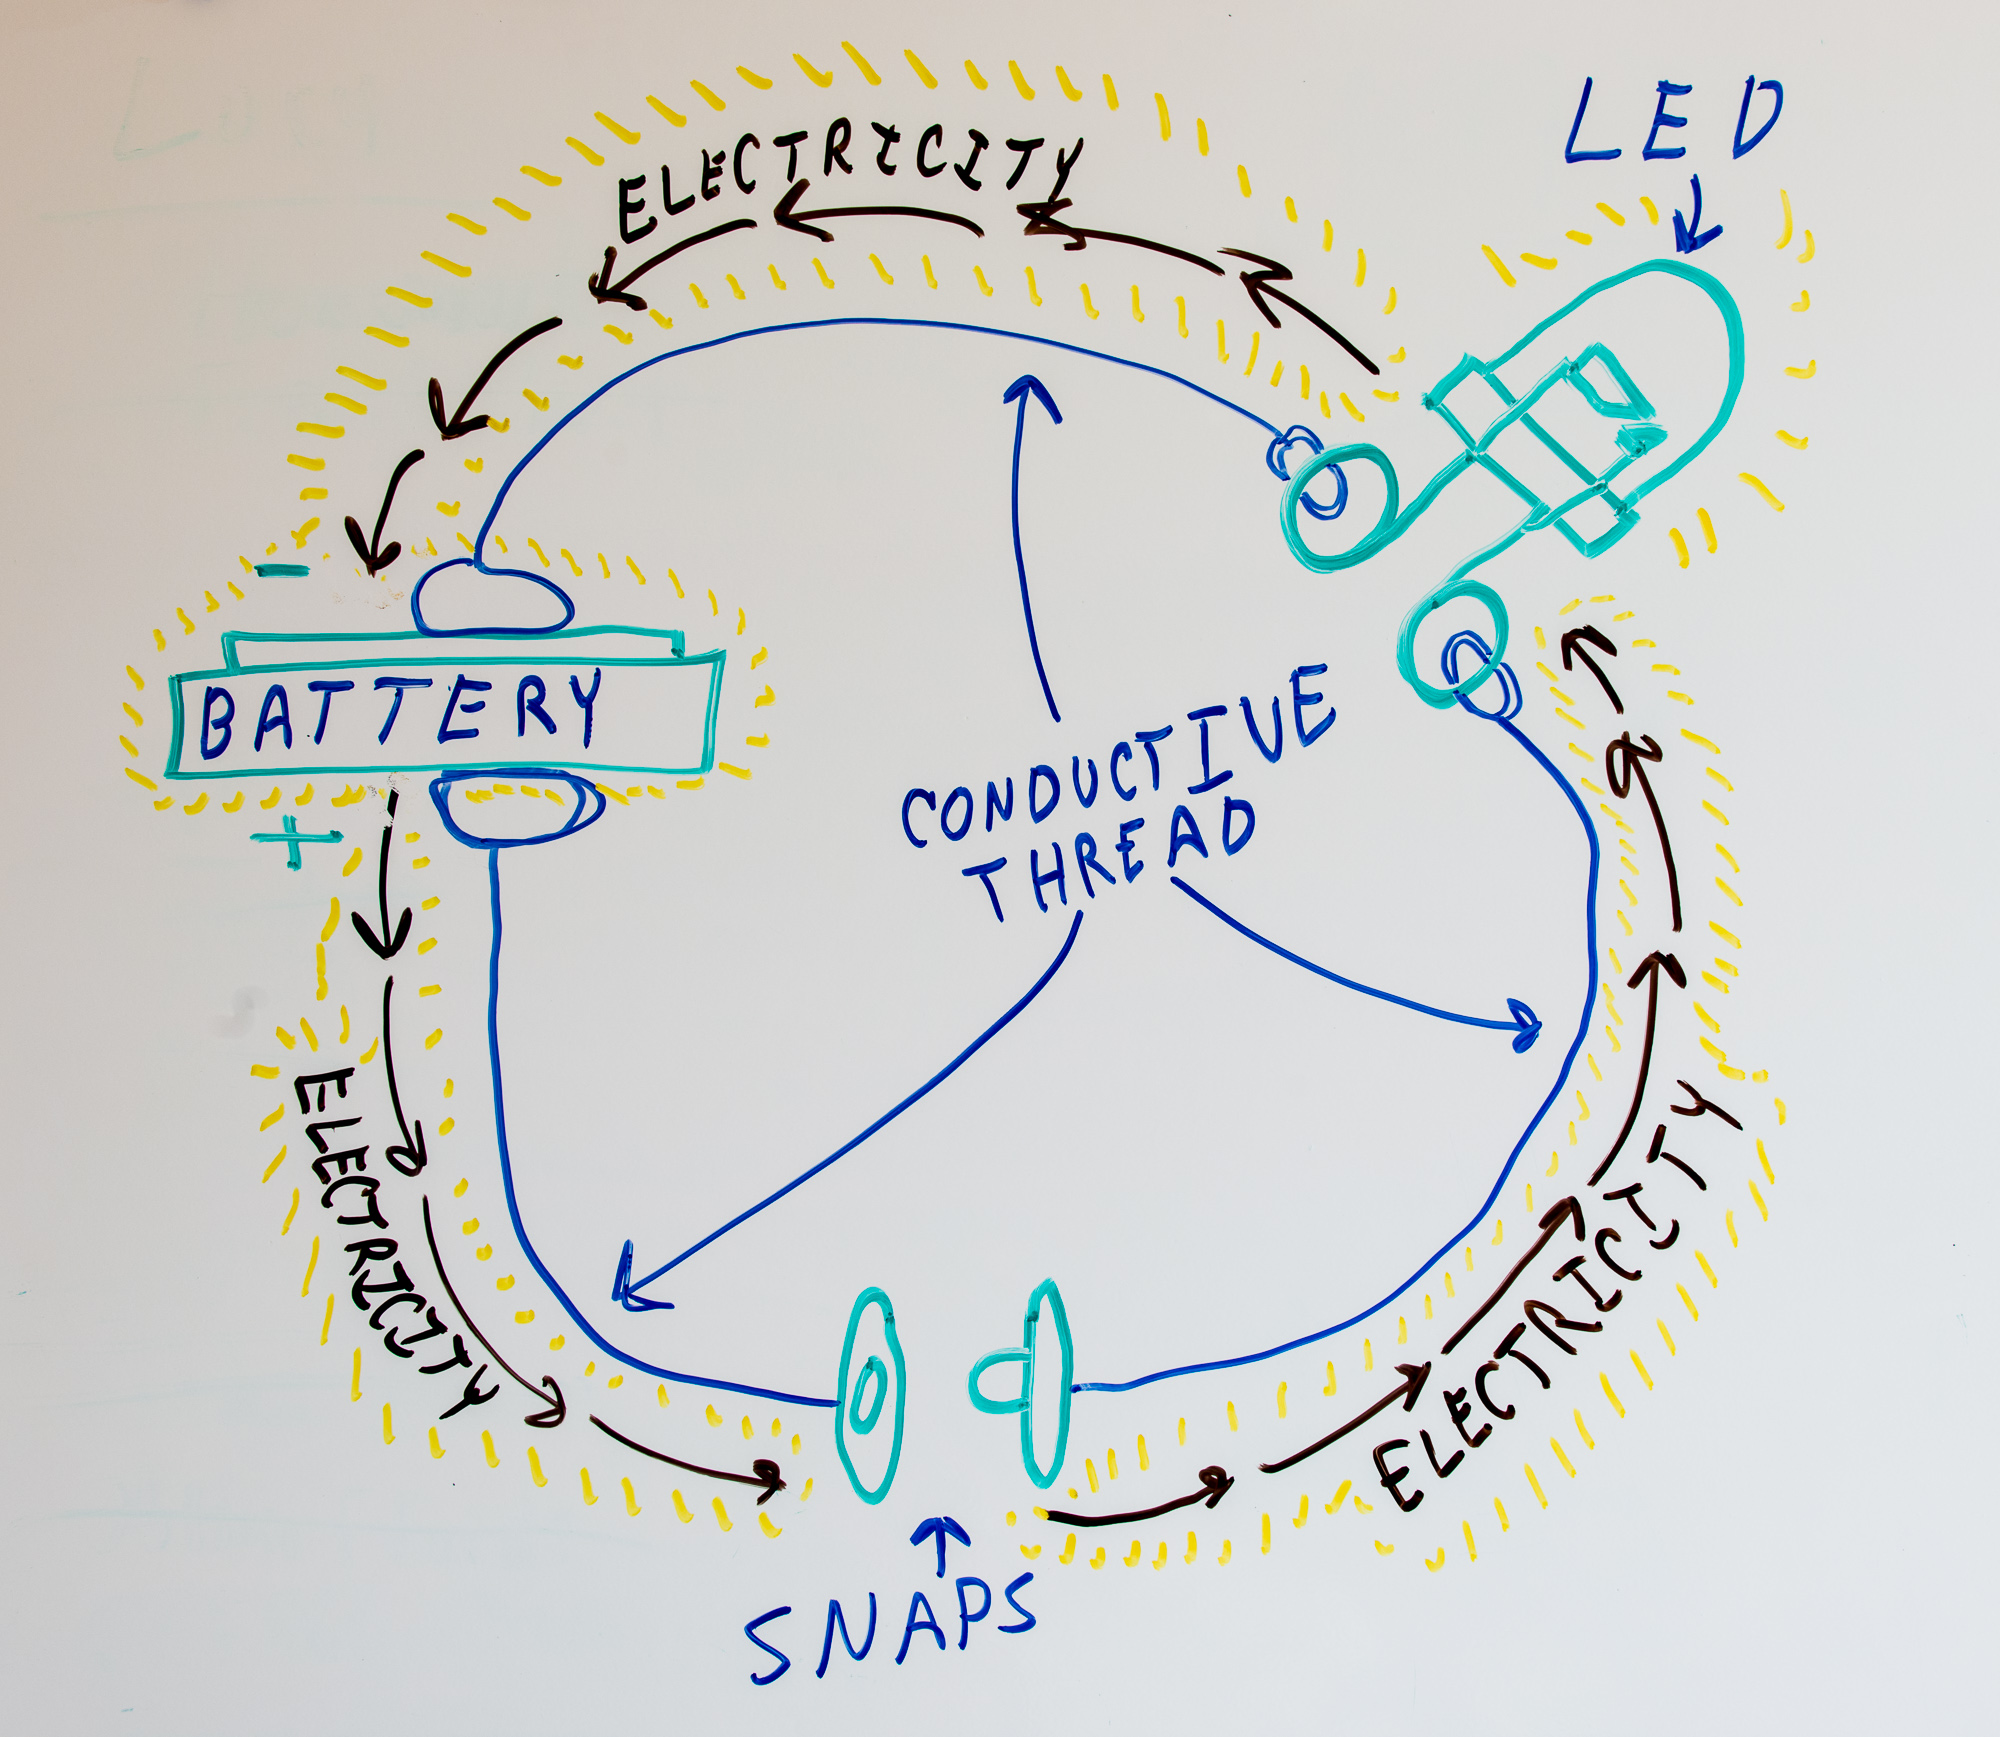 LED
ELECTRICITY
-
BATTERY
+
CONDUCTIVE
THREAD
ELECTRICITY
ELECTRICITY
SNAPS